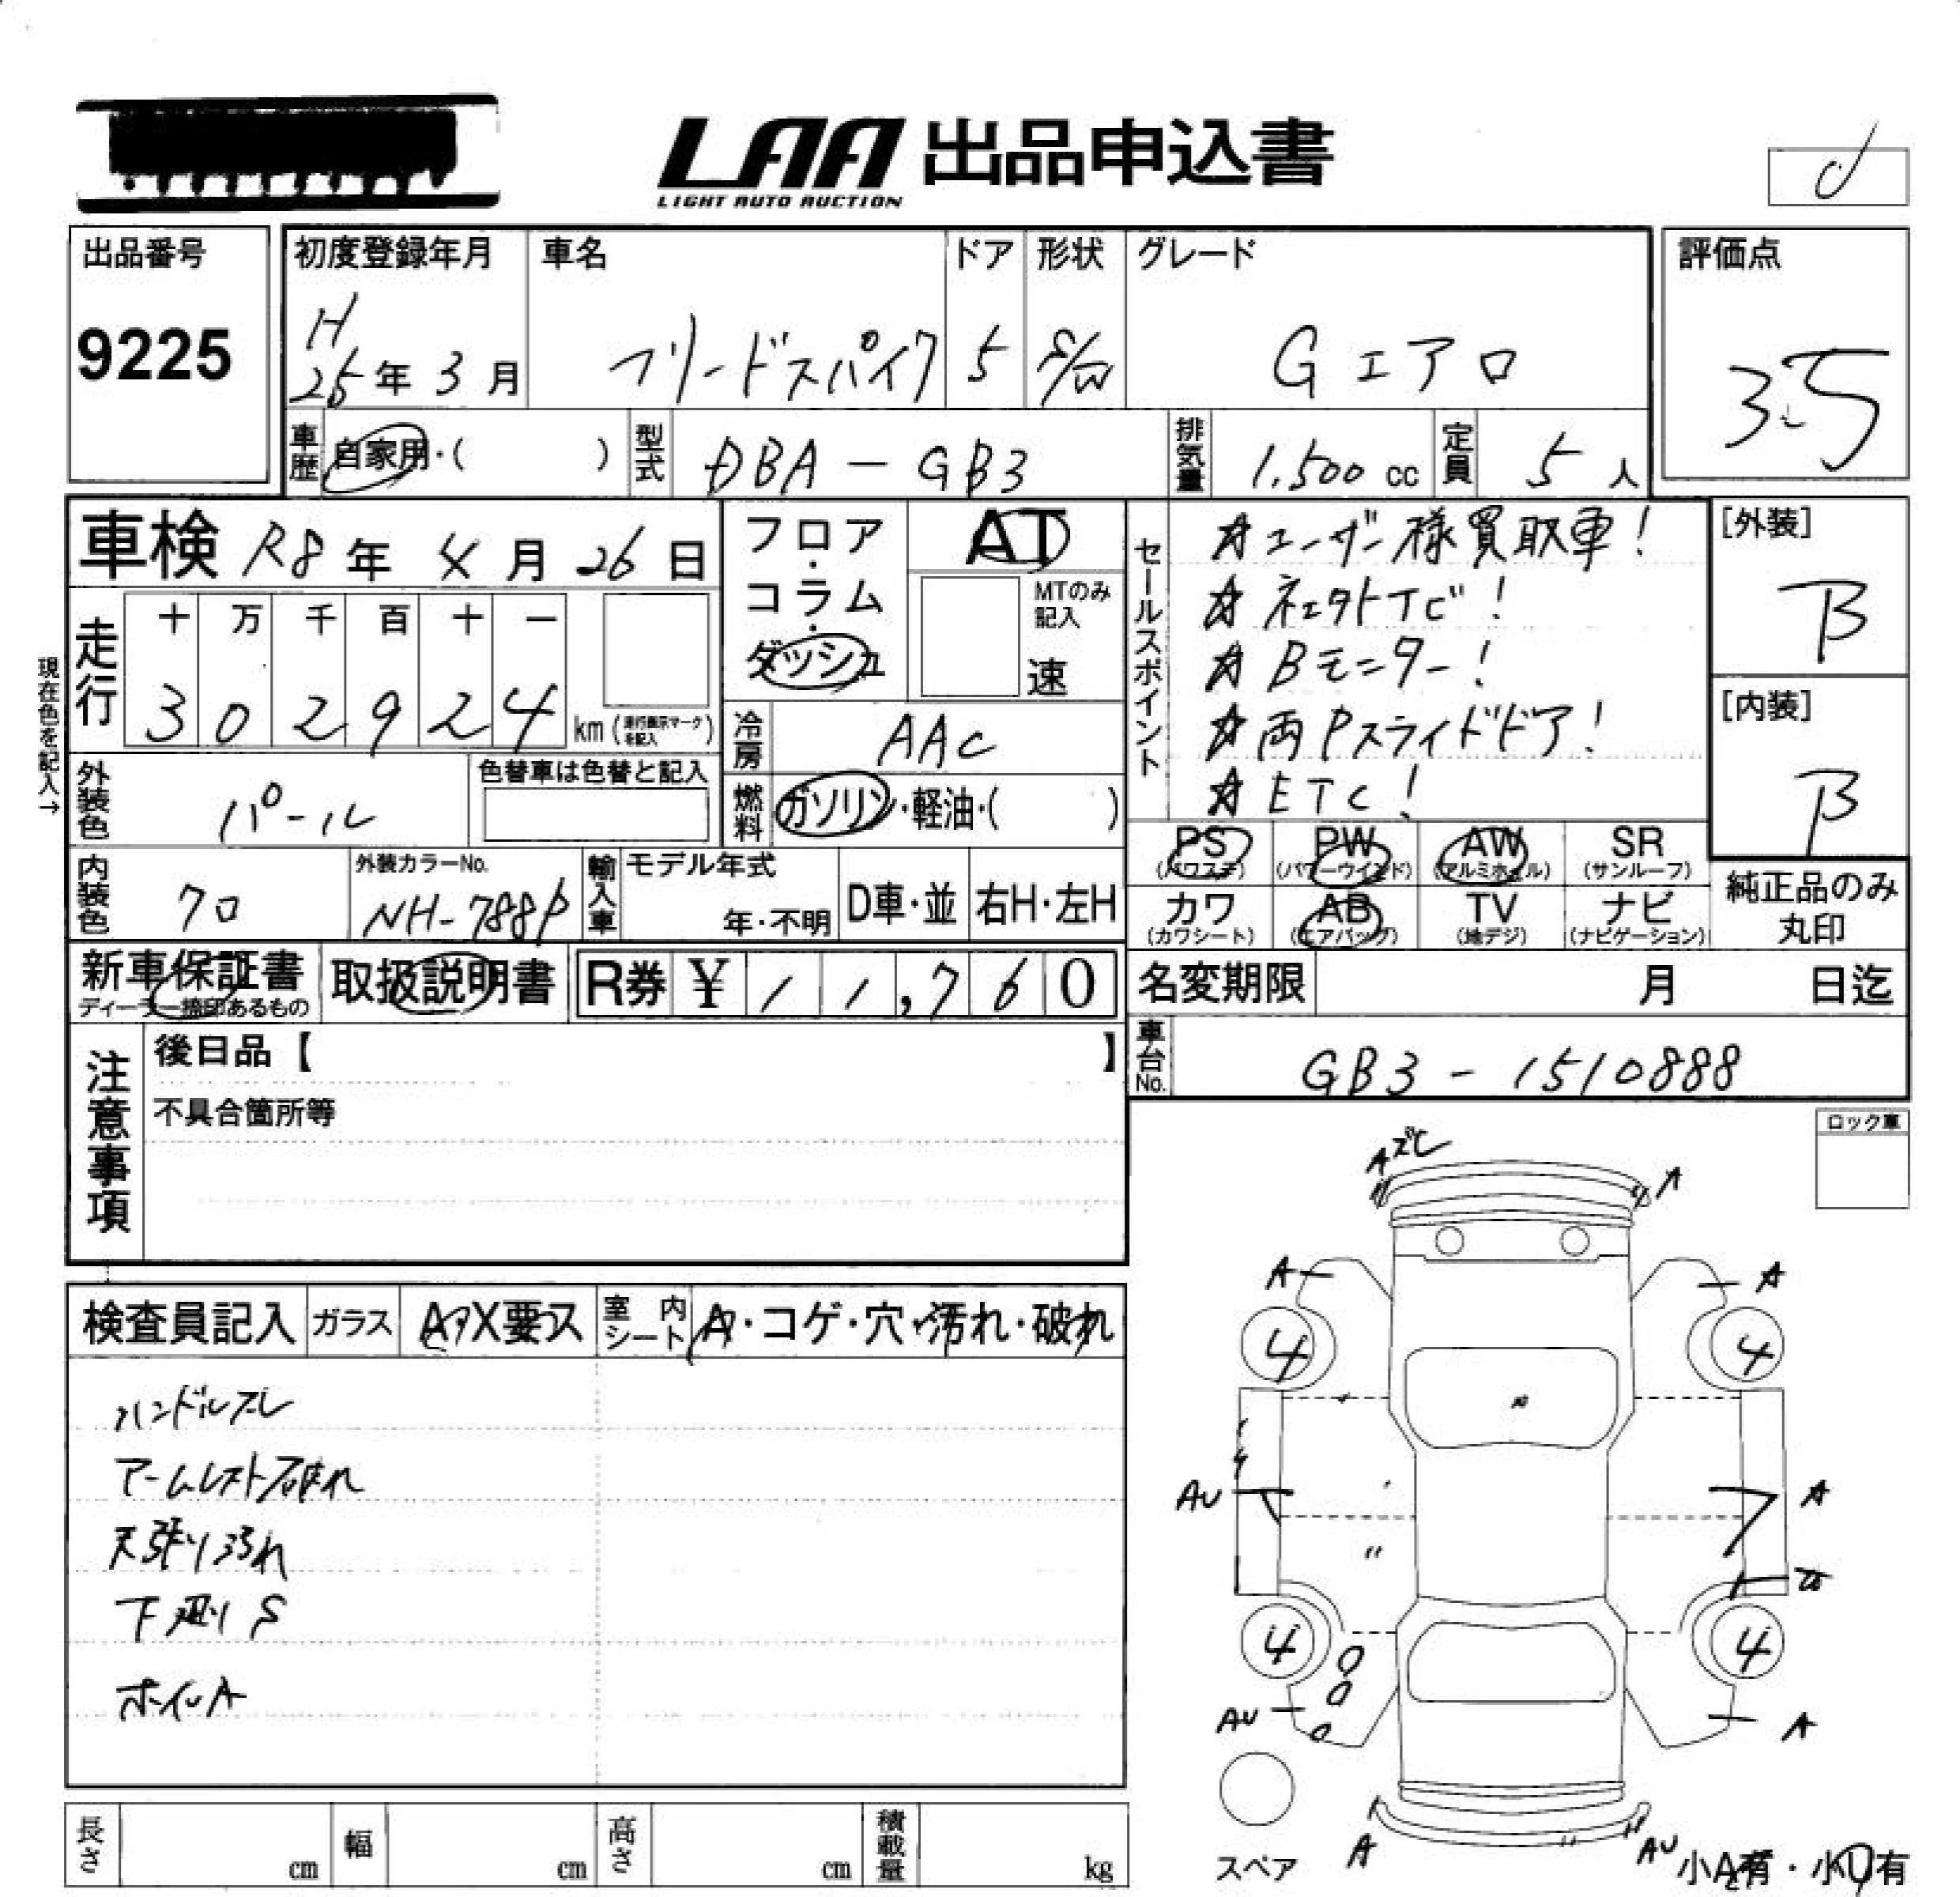 LAA 出品申込書
LIGHT AUTO AUCTION
出品番号
9225
初度登録年月
H
25年 3月
車名
フリードスパイク
ドア
5
形状
S/W
グレード
Gエアロ
評価点
3.5
車歴
自家用・(　　)
型式
DBA-GB3
排気量
1,500 cc
定員
5 人
車検 R8年 4月 26日
現在色を記入→
走行
十 万 千 百 十 一
3 0 2 9 2 4
km (走行表示マークを記入)
フロア・コラム・ダッシュ
AT
MTのみ記入
速
冷房
AAC
燃料
ガソリン・軽油・(　　)
外装色
パール
色替車は色替と記入
内装色
クロ
外装カラーNo.
NH-788P
輸入車
モデル年式
年・不明
D車・並
右H・左H
セールスポイント
☆ユーザー様買取車!
☆ Bモニター!
☆両Pスライドドア!
☆ETC!
PS (パワステ)
PW (パワーウインド)
AW (アルミホイル)
SR (サンルーフ)
カワ (カワシート)
AB (エアバッグ)
TV (地デジ)
ナビ (ナビゲーション)
[外装]
B
[内装]
B
純正品のみ丸印
新車保証書
ディーラー捺印あるもの
取扱説明書
R券 ¥ 11,760
名変期限　月　日迄
車台No.
GB3-1510888
注意事項
後日品【　】
不具合箇所等
ロック車
検査員記入
ガラス
A・X要ス
室内シート
A・コゲ・穴・汚れ・破れ
ハンドルスレ
アームレスト破れ
天張り汚れ
下廻りS
ホイルA
Aズレ
A
A
A
4
4
AU
A
4
4
AU
A
スペア
A
AU
小A有・小U有
長さ cm
幅 cm
高さ cm
積載量 kg